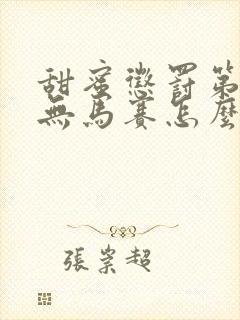 甜蜜懲罰第
無馬賽怎麼
張崇超